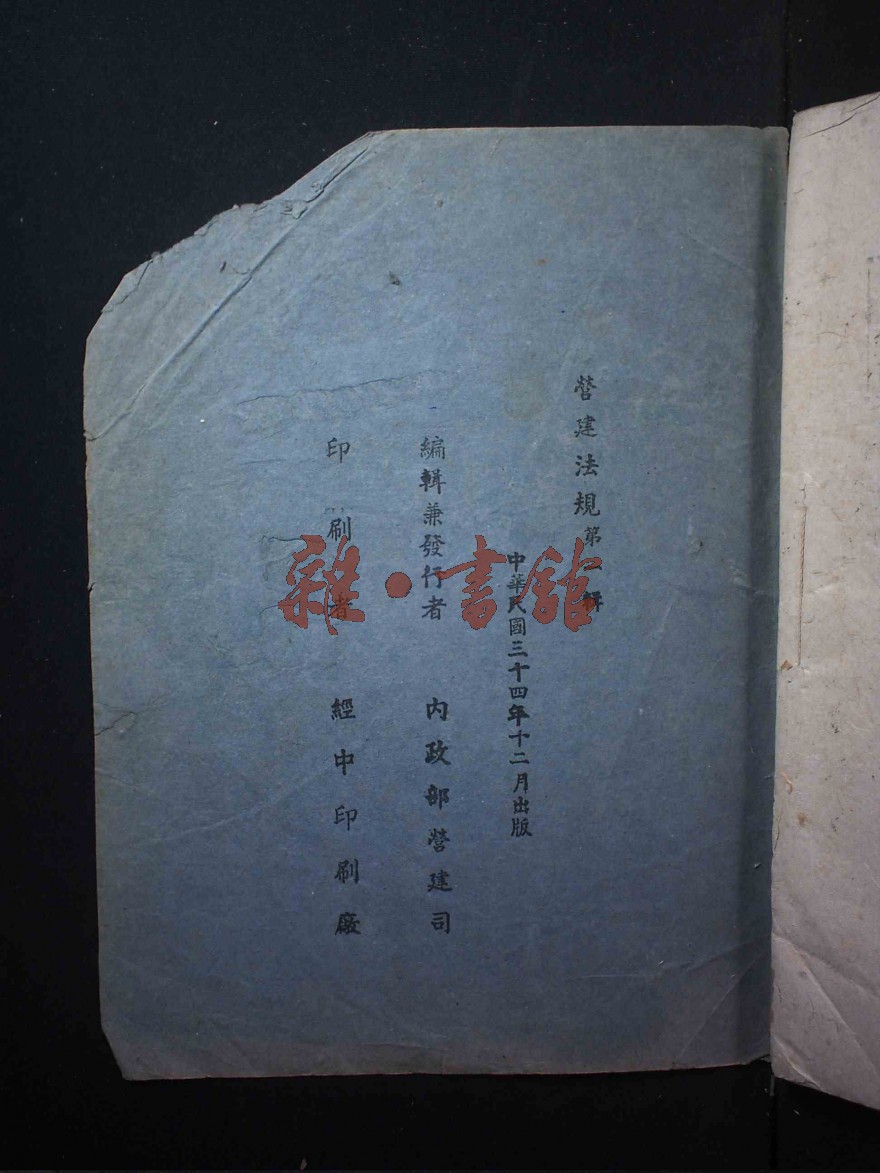 營建法規第 輯
中華民國三十四年十二月出版
編輯兼發行者 內政部營建司
印刷者 經中印刷廠
雜·書館